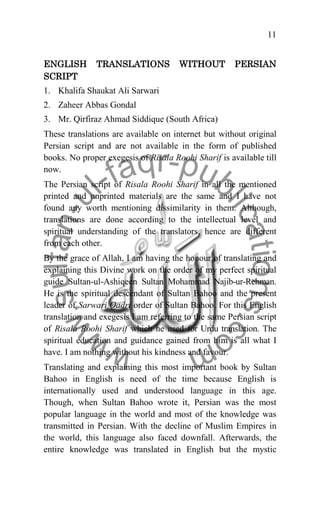 11
ENGLISH TRANSLATIONS WITHOUT PERSIAN
SCRIPT
1. Khalifa Shaukat Ali Sarwari
2. Zaheer Abbas Gondal
3. Mr. Qirfiraz Ahmad Siddique (South Africa)
These translations are available on internet but without original
Persian script and are not available in the form of published
books. No proper exegesis of Risala Roohi Sharif is available till
now.
The Persian script of Risala Roohi Sharif in all the mentioned
printed and unprinted materials are the same and I have not
found any worth mentioning dissimilarity in them. Although,
translations are done according to the intellectual level and
spiritual understanding of the translators, hence are different
from each other.
By the grace of Allah, I am having the honour of translating and
explaining this Divine work on the order of my perfect spiritual
guide Sultan-ul-Ashiqeen Sultan Mohammad Najib-ur-Rehman.
He is the spiritual descendant of Sultan Bahoo and the present
leader of Sarwari Qadri order of Sultan Bahoo. For this English
translation and exegesis I am referring to the same Persian script
of Risala Roohi Sharif which he used for Urdu translation. The
spiritual education and guidance gained from him is all what I
have. I am nothing without his kindness and favour.
Translating and explaining this most important book by Sultan
Bahoo in English is need of the time because English is
internationally used and understood language in this age.
Though, when Sultan Bahoo wrote it, Persian was the most
popular language in the world and most of the knowledge was
transmitted in Persian. With the decline of Muslim Empires in
the world, this language also faced downfall. Afterwards, the
entire knowledge was translated in English but the mystic